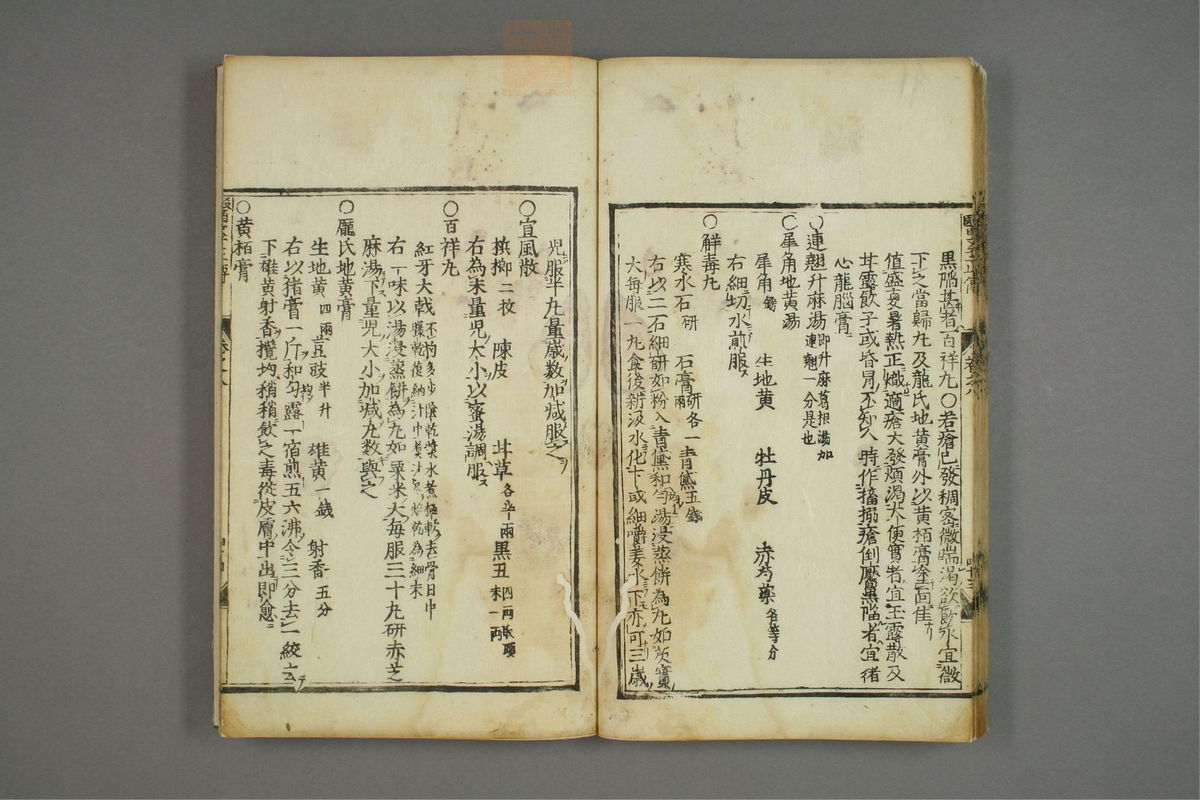 黒陥甚者百祥丸〇若瘡已發稠密微喘渴欲飲水宜微
下之當歸丸及龍氏地黄膏外以黄栢膏塗面佳
值盛夏暑熱正熾適瘡大發煩渴大便實者宜玉露散及
甘露飲子或昏冒不知人時作搐搦瘡倒靨黒陥者宜猪
心龍腦膏
〇連翹升麻湯 即升麻葛根湯加連翹一分是也
〇犀角地黄湯
犀角 生地黄 牡丹皮 赤芍藥 各等分
右細切水煎服
〇解毒丸
寒水石 研 石膏 研各一兩 青黛 五錢
右以二石細研如粉入青黛和勻湯浸蒸餅為丸如芡實
大每服一丸食後新汲水化下或細嚼姜水下亦可三歲
児服半丸量歲数加减服之
〇宣風散
檳榔 二枚 陳皮 甘草 各半兩 黒丑 四兩取頭末一兩
右為末量児大小以蜜湯調服
〇百祥丸
紅牙大戟 不拘多少陰乾漿水煮極軟去骨日中曝乾復納汁中煮汁尽焙乾為細末
右一味以湯浸蒸餅為丸如粟米大每服三十丸研赤芝
麻湯下量児大小加减丸数與之
〇龐氏地黄膏
生地黄 四兩 豆豉 半升 雄黄 一錢 射香 五分
右以猪膏一斤和勻露一宿煎五六沸令三分去一絞去
下雄黄射香攪均稍稍飲之毒從皮層中出即愈
〇黄栢膏